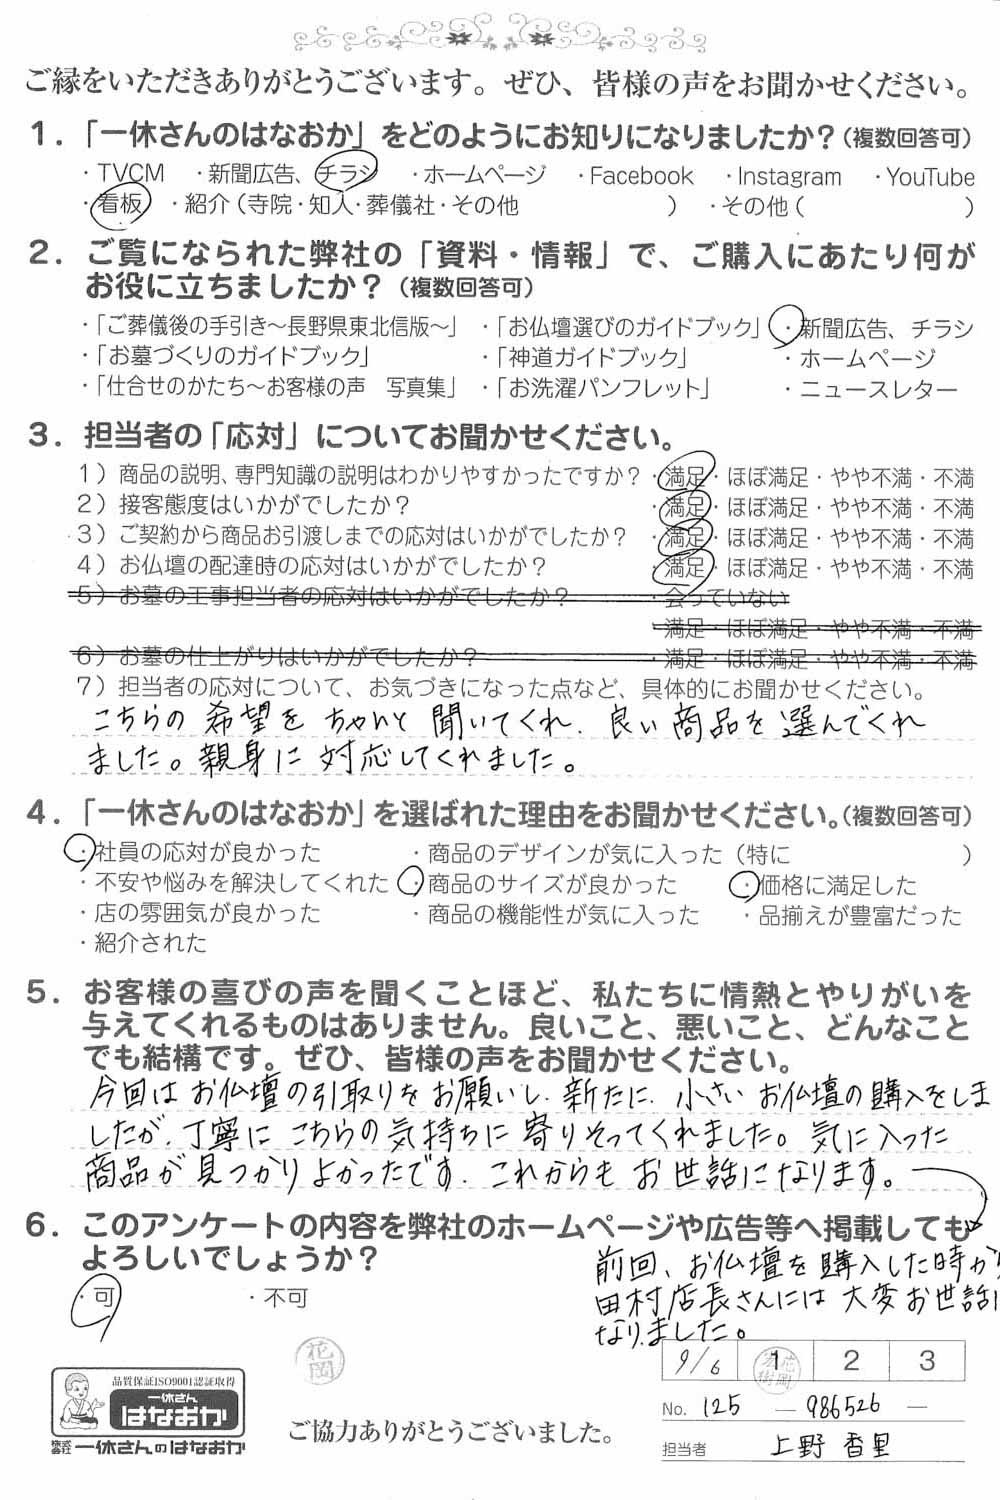 ご縁をいただきありがとうございます。ぜひ、皆様の声をお聞かせください。
1.「一休さんのはなおか」をどのようにお知りになりましたか？(複数回答可)
・TVCM ・新聞広告、チラシ ・ホームページ ・Facebook ・Instagram ・YouTube
・看板 ・紹介(寺院・知人・葬儀社・その他 ) ・その他( )
2. ご覧になられた弊社の「資料・情報」で、ご購入にあたり何が
お役に立ちましたか？(複数回答可)
・「ご葬儀後の手引き〜長野県東北信版〜」 ・「お仏壇選びのガイドブック」 ・新聞広告、チラシ
・「お墓づくりのガイドブック」 ・「神道ガイドブック」 ・ホームページ
・「仕合せのかたち〜お客様の声 写真集」 ・「お洗濯パンフレット」 ・ニュースレター
3. 担当者の「応対」についてお聞かせください。
1）商品の説明、専門知識の説明はわかりやすかったですか？・満足・ほぼ満足・やや不満・不満
2）接客態度はいかがでしたか？ ・満足・ほぼ満足・やや不満・不満
3）ご契約から商品お引渡しまでの応対はいかがでしたか？ ・満足・ほぼ満足・やや不満・不満
4）お仏壇の配達時の応対はいかがでしたか？ ・満足・ほぼ満足・やや不満・不満
5）お墓の工事担当者の応対はいかがでしたか？ ・会っていない
・満足・ほぼ満足・やや不満・不満
6）お墓の仕上がりはいかがでしたか？ ・満足・ほぼ満足・やや不満・不満
7）担当者の応対について、お気づきになった点など、具体的にお聞かせください。
こちらの希望をちゃんと聞いてくれ、良い商品を選んでくれ
ました。親身に対応してくれました。
4.「一休さんのはなおか」を選ばれた理由をお聞かせください。(複数回答可)
・社員の応対が良かった ・商品のデザインが気に入った(特に )
・不安や悩みを解決してくれた ・商品のサイズが良かった ・価格に満足した
・店の雰囲気が良かった ・商品の機能性が気に入った ・品揃えが豊富だった
・紹介された
5. お客様の喜びの声を聞くことほど、私たちに情熱とやりがいを
与えてくれるものはありません。良いこと、悪いこと、どんなこと
でも結構です。ぜひ、皆様の声をお聞かせください。
今回はお仏壇の引取りをお願いし、新たに、小さいお仏壇の購入をしま
したが、丁寧にこちらの気持ちに寄りそってくれました。気に入った
商品が見つかりよかったです。これからもお世話になります。
6. このアンケートの内容を弊社のホームページや広告等へ掲載しても
よろしいでしょうか？
前回、お仏壇を購入した時から
田村店長さんには大変お世話に
なりました。
・可 ・不可
花岡
9/6 1 2 3
花岡
品質保証ISO9001認証取得
一休さん
はなおか
株式会社 一休さんのはなおか
ご協力ありがとうございました。
No. 125 — 986526 —
担当者 上野 香里